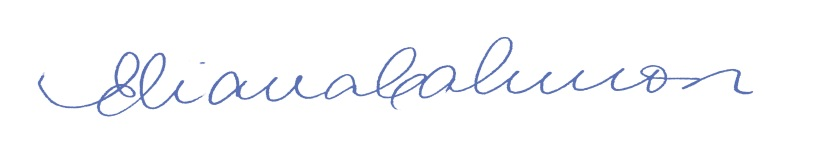 Eliana Calmon